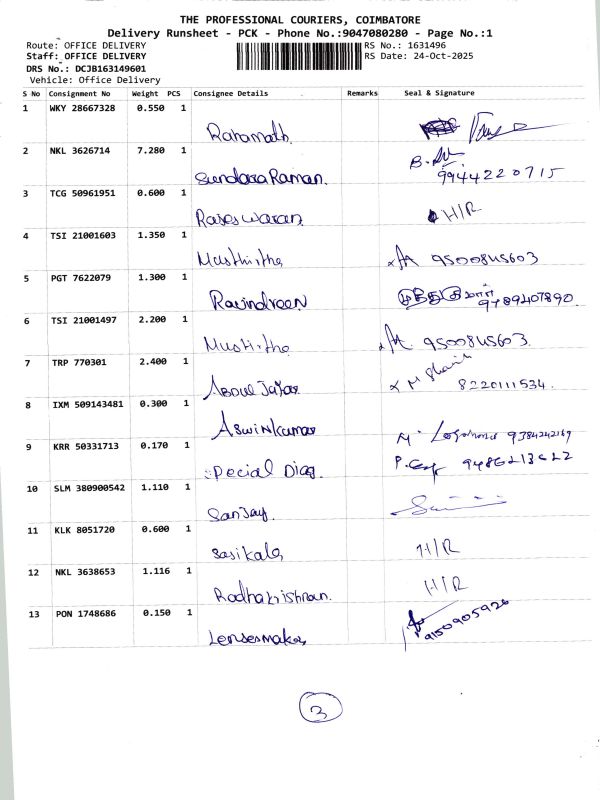 THE PROFESSIONAL COURIERS, COIMBATORE
Delivery Runsheet - PCK - Phone No.:9047080280 - Page No.:1
Route: OFFICE DELIVERY RS No.: 1631496
Staff: OFFICE DELIVERY RS Date: 24-Oct-2025
DRS No.: DCJB163149601
Vehicle: Office Delivery
S No Consignment No Weight PCS Consignee Details Remarks Seal & Signature
1 WKY 28667328 0.550 1 Rahamath.
2 NKL 3626714 7.280 1 Sundara Raman. 9944220715
3 TCG 50961951 0.600 1 H/R
4 TSI 21001603 1.350 1 9500845603
5 PGT 7622079 1.300 1 Ravindreen 9489407890.
6 TSI 21001497 2.200 1 9500845603.
7 TRP 770301 2.400 1 8220111534.
8 IXM 509143481 0.300 1 Aswinkumar
9 KRR 50331713 0.170 1 Special Diag.
10 SLM 380900542 1.110 1 Sanjay.
11 KLK 8051720 0.600 1 Sasikala H/R
12 NKL 3638653 1.116 1 Radhakrishnan. H/R
13 PON 1748686 0.150 1 Lensesmaker 9150905926
3